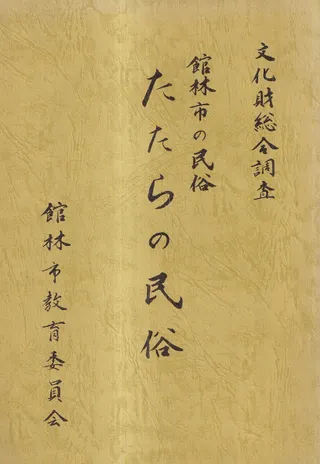 文化財総合調査
館林市の民俗
たたらの民俗
館林市教育委員会